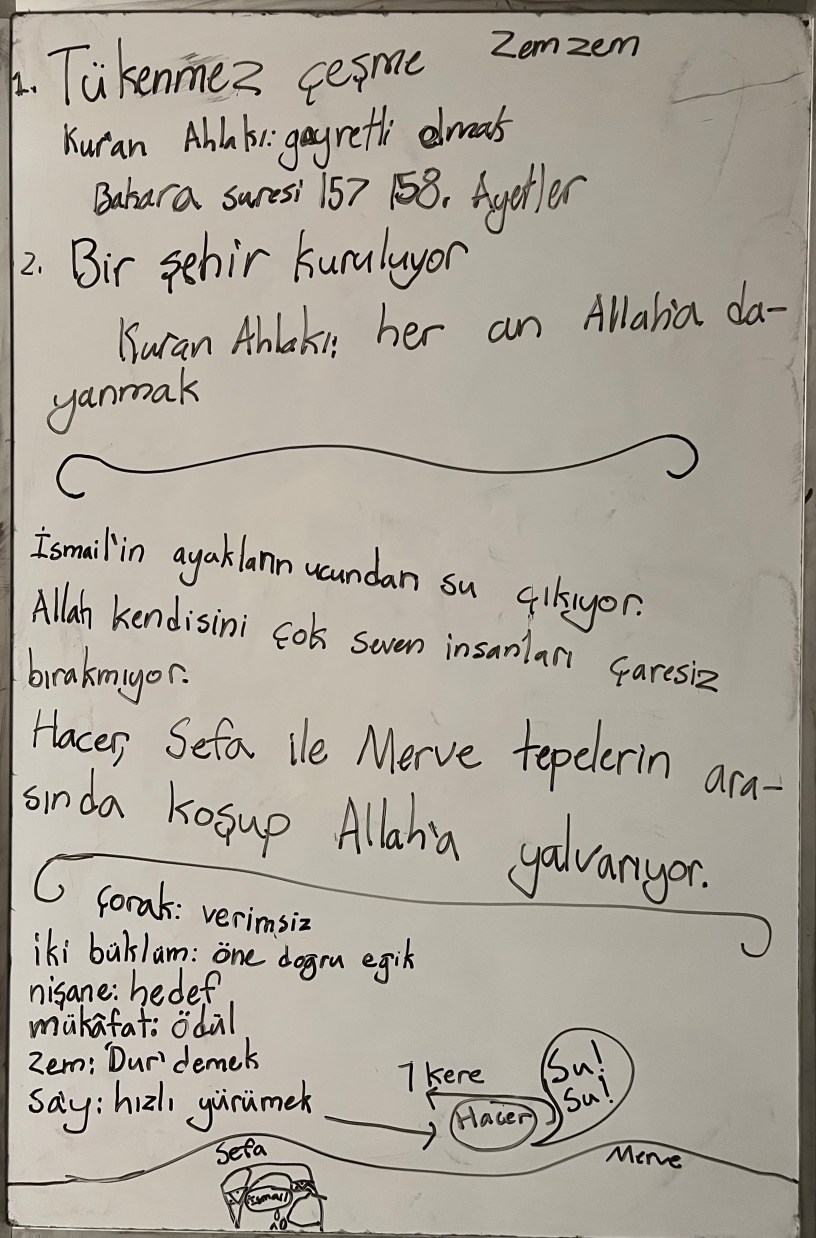 Zemzem
1. Tükenmez çeşme
Kur'an Ahlakı: gayretli olmak
Bakara suresi 157 158. Ayetler
2. Bir şehir kuruluyor
Kuran Ahlakı: her an Allah'a da-
yanmak
İsmail'in ayakların ucundan su çıkıyor.
Allah kendisini çok seven insanları çaresiz
bırakmıyor.
Hacer, Sefa ile Merve tepelerin ara-
sında koşup Allah'a yalvarıyor.
çorak: verimsiz
iki büklüm: öne doğru eğik
nişane: hedef
mükâfat: ödül
zem: 'Dur' demek
Say: hızlı yürümek
7 kere
Hacer
Su!
Su!
Sefa
Merve
İsmail